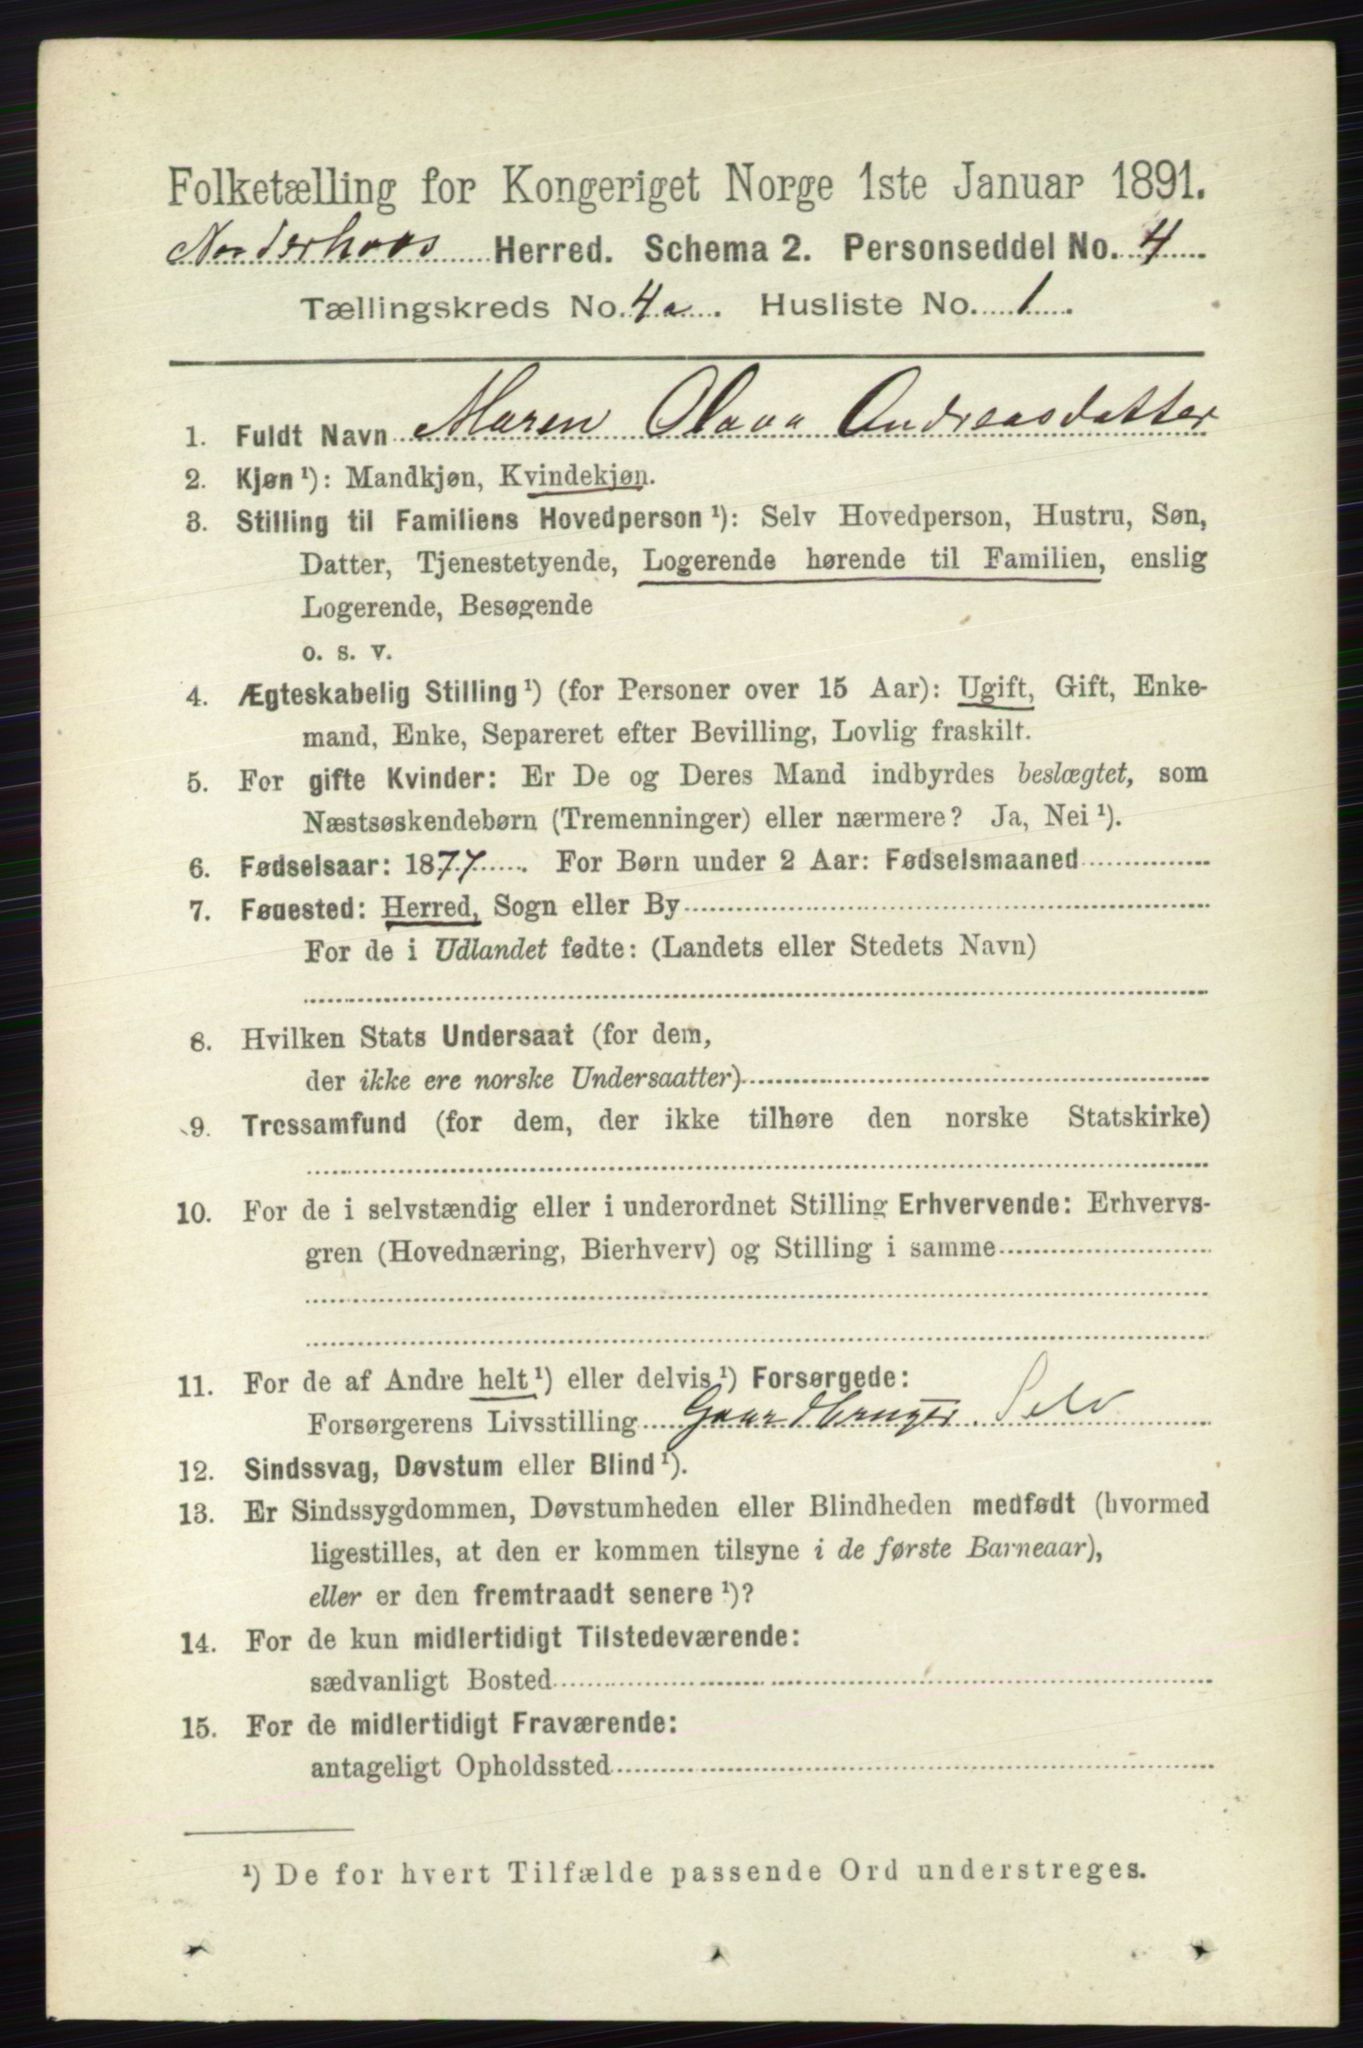 Folketælling for Kongeriget Norge 1ste Januar 1891.
Norderhovs Herred. Schema 2. Personseddel No. 4
Tællingskreds No. 4a. Husliste No. 1.
1. Fuldt Navn Maren Olava Andreasdatter
2. Kjøn ¹): Mandkjøn, Kvindekjøn.
3. Stilling til Familiens Hovedperson ¹): Selv Hovedperson, Hustru, Søn,
Datter, Tjenestetyende, Logerende hørende til Familien, enslig
Logerende, Besøgende
o. s. v.
4. Ægteskabelig Stilling ¹) (for Personer over 15 Aar): Ugift, Gift, Enke-
mand, Enke, Separeret efter Bevilling, Lovlig fraskilt.
5. For gifte Kvinder: Er De og Deres Mand indbyrdes beslægtet, som
Næstsøskendebørn (Tremenninger) eller nærmere? Ja, Nei ¹).
6. Fødselsaar: 1877. For Børn under 2 Aar: Fødselsmaaned
7. Føuested: Herred, Sogn eller By
For de i Udlandet fødte: (Landets eller Stedets Navn)
8. Hvilken Stats Undersaat (for dem,
der ikke ere norske Undersaatter)
9. Trossamfund (for dem, der ikke tilhøre den norske Statskirke)
10. For de i selvstændig eller i underordnet Stilling Erhvervende: Erhvervs-
gren (Hovednæring, Bierhverv) og Stilling i samme
11. For de af Andre helt ¹) eller delvis ¹) Forsørgede:
Forsørgerens Livsstilling Gaardbruger. Selv
12. Sindssvag, Døvstum eller Blind ¹).
13. Er Sindssygdommen, Døvstumheden eller Blindheden medfødt (hvormed
ligestilles, at den er kommen tilsyne i de første Barneaar),
eller er den fremtraadt senere ¹)?
14. For de kun midlertidigt Tilstedeværende:
sædvanligt Bosted
15. For de midlertidigt Fraværende:
antageligt Opholdssted
¹) De for hvert Tilfælde passende Ord understreges.